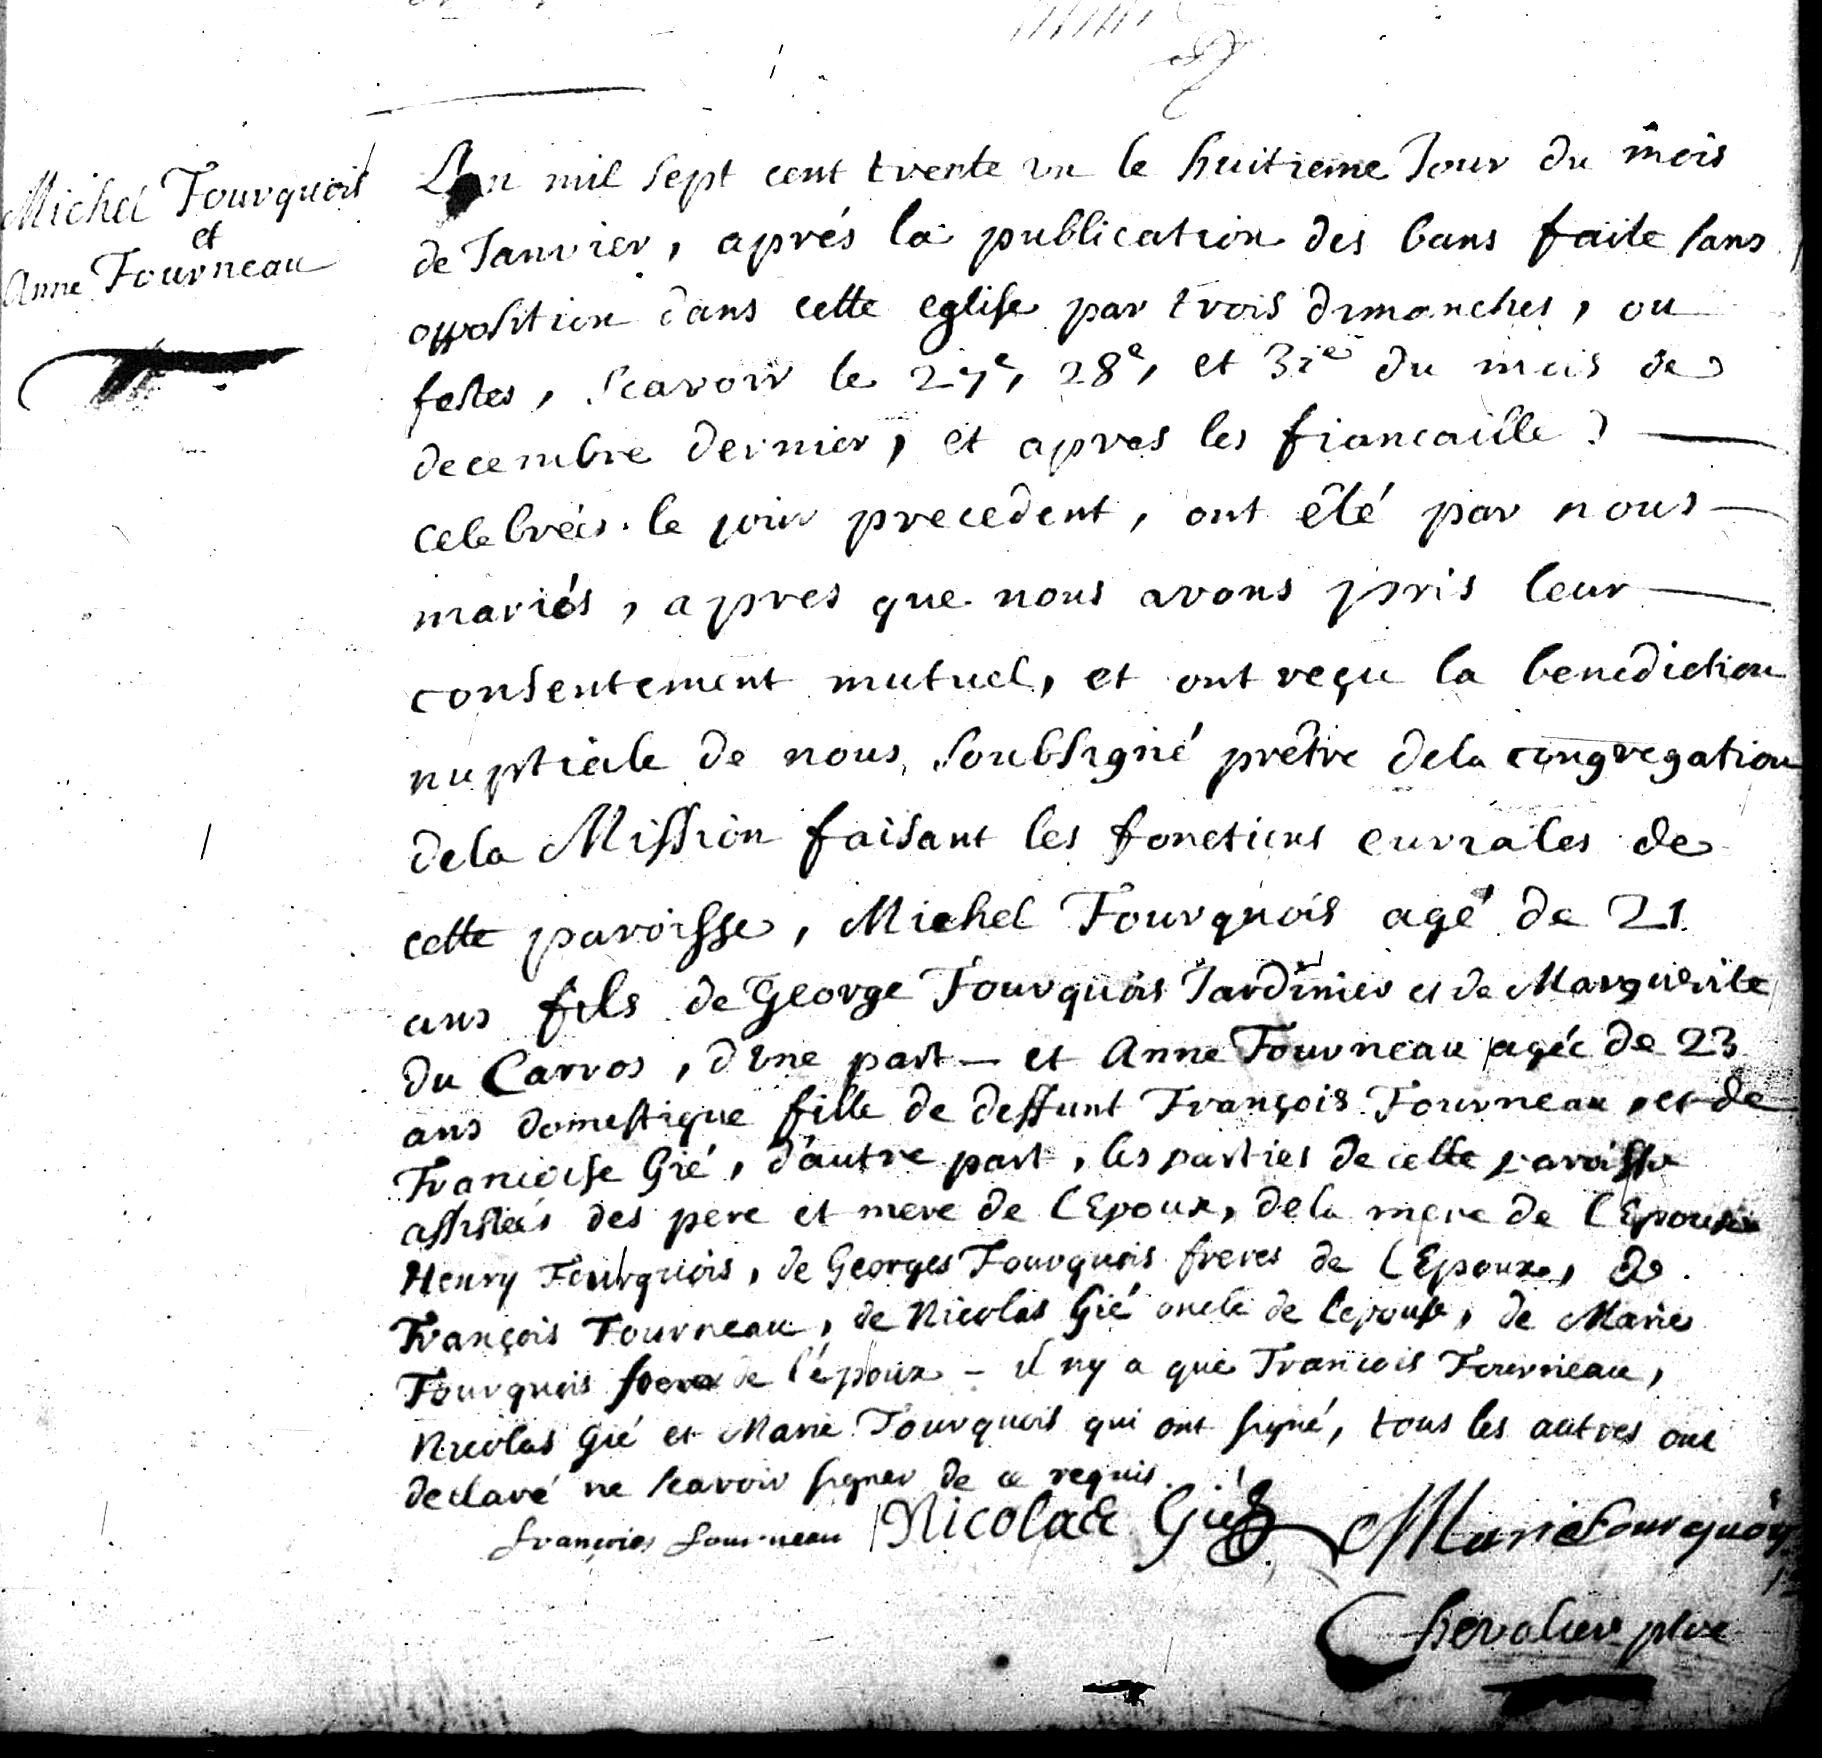 Michel Fourquois
et
Anne Fourneau
L'an mil sept cent trente un le huitieme Jour du mois
de Janvier, aprés la publication des bans faite sans
opposition dans cette eglise par trois dimanches, ou
festes, scavoir le 27e, 28e, et 31e du mois de
decembre dernier, et apres les fiancaille
celebreés le jour precedent, ont été par nous
mariés, apres que nous avons pris leur
consentement mutuel, et ont reçu la benediction
nuptiale de nous, soubsigné prêtre dela congregation
dela Mission faisant les fonctions curiales de
cette paroisse, Michel Fourquois agé de 21
ans fils de George Fourquois Jardinier et de Marguerite
du Carros, d'une part - et Anne Fourneau agée de 23
ans domestique fille de deffunt François Fourneau, et de
Francoise Gié, d'autre part, les parties de cette paroisse
assisteés des pere et mere de l'Epoux, dela mere de l'Epouse
Henry Fourquois, de Georges Fourquois freres de l'Epoux, de
François Fourneau, de Nicolas Gié oncle de l'epouse, de Marie
Fourquois de l'époux - il ny a que Francois Fourneau,
Nicolas Gié et Marie Fourquois qui ont signé, tous les autres ont
declaré ne scavoir signer de ce requis.
françois fourneau Nicolas Gié Marie fourquois
Chevalier ptre